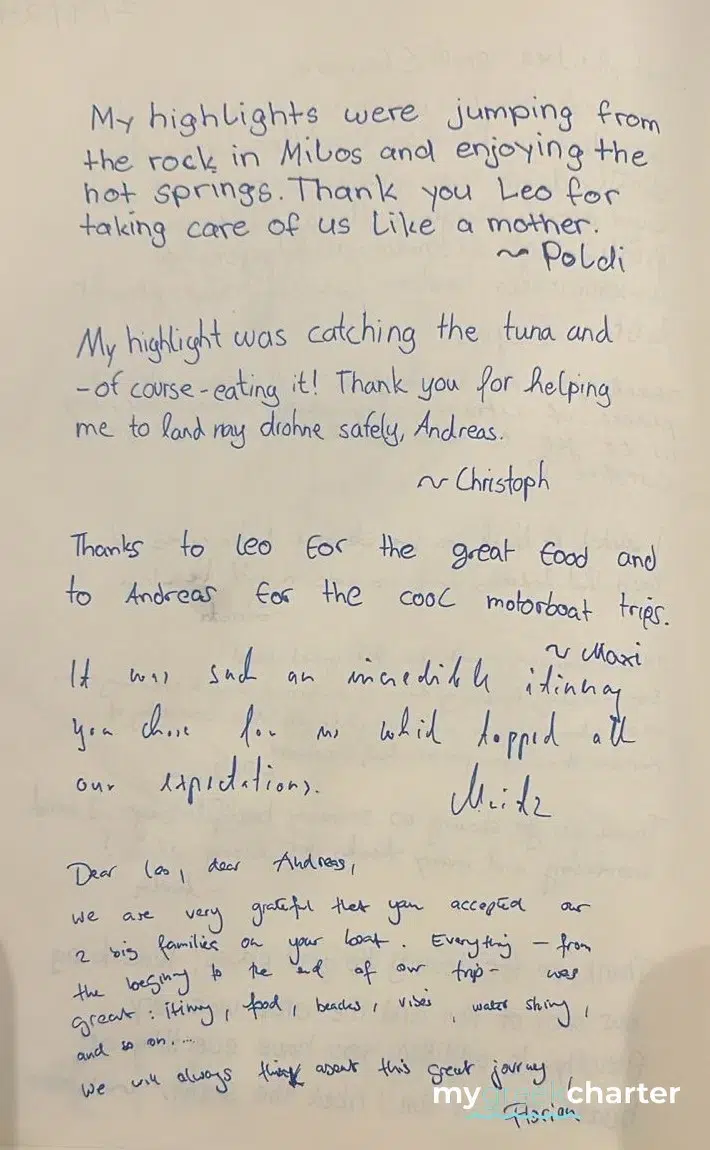 My highlights were jumping from
the rock in Milos and enjoying the
hot springs. Thank you Leo for
taking care of us like a mother.
~ Poldi
My highlight was catching the tuna and
- of course - eating it! Thank you for helping
me to land my drohne safely, Andreas.
~ Christoph
Thanks to Leo for the great food and
to Andreas for the cool motorboat trips.
~ Maxi
It was such an incredible itinnay
you chose for us which topped all
our expectations.
Dear Leo, dear Andreas,
we are very grateful that you accepted our
2 big families on your boat. Everything - from
the beginning to the end of our trip - was
great: food, beaches, vibes, water skiing,
and so on....
We will always think about this great journey,
Florian
mygreekcharter